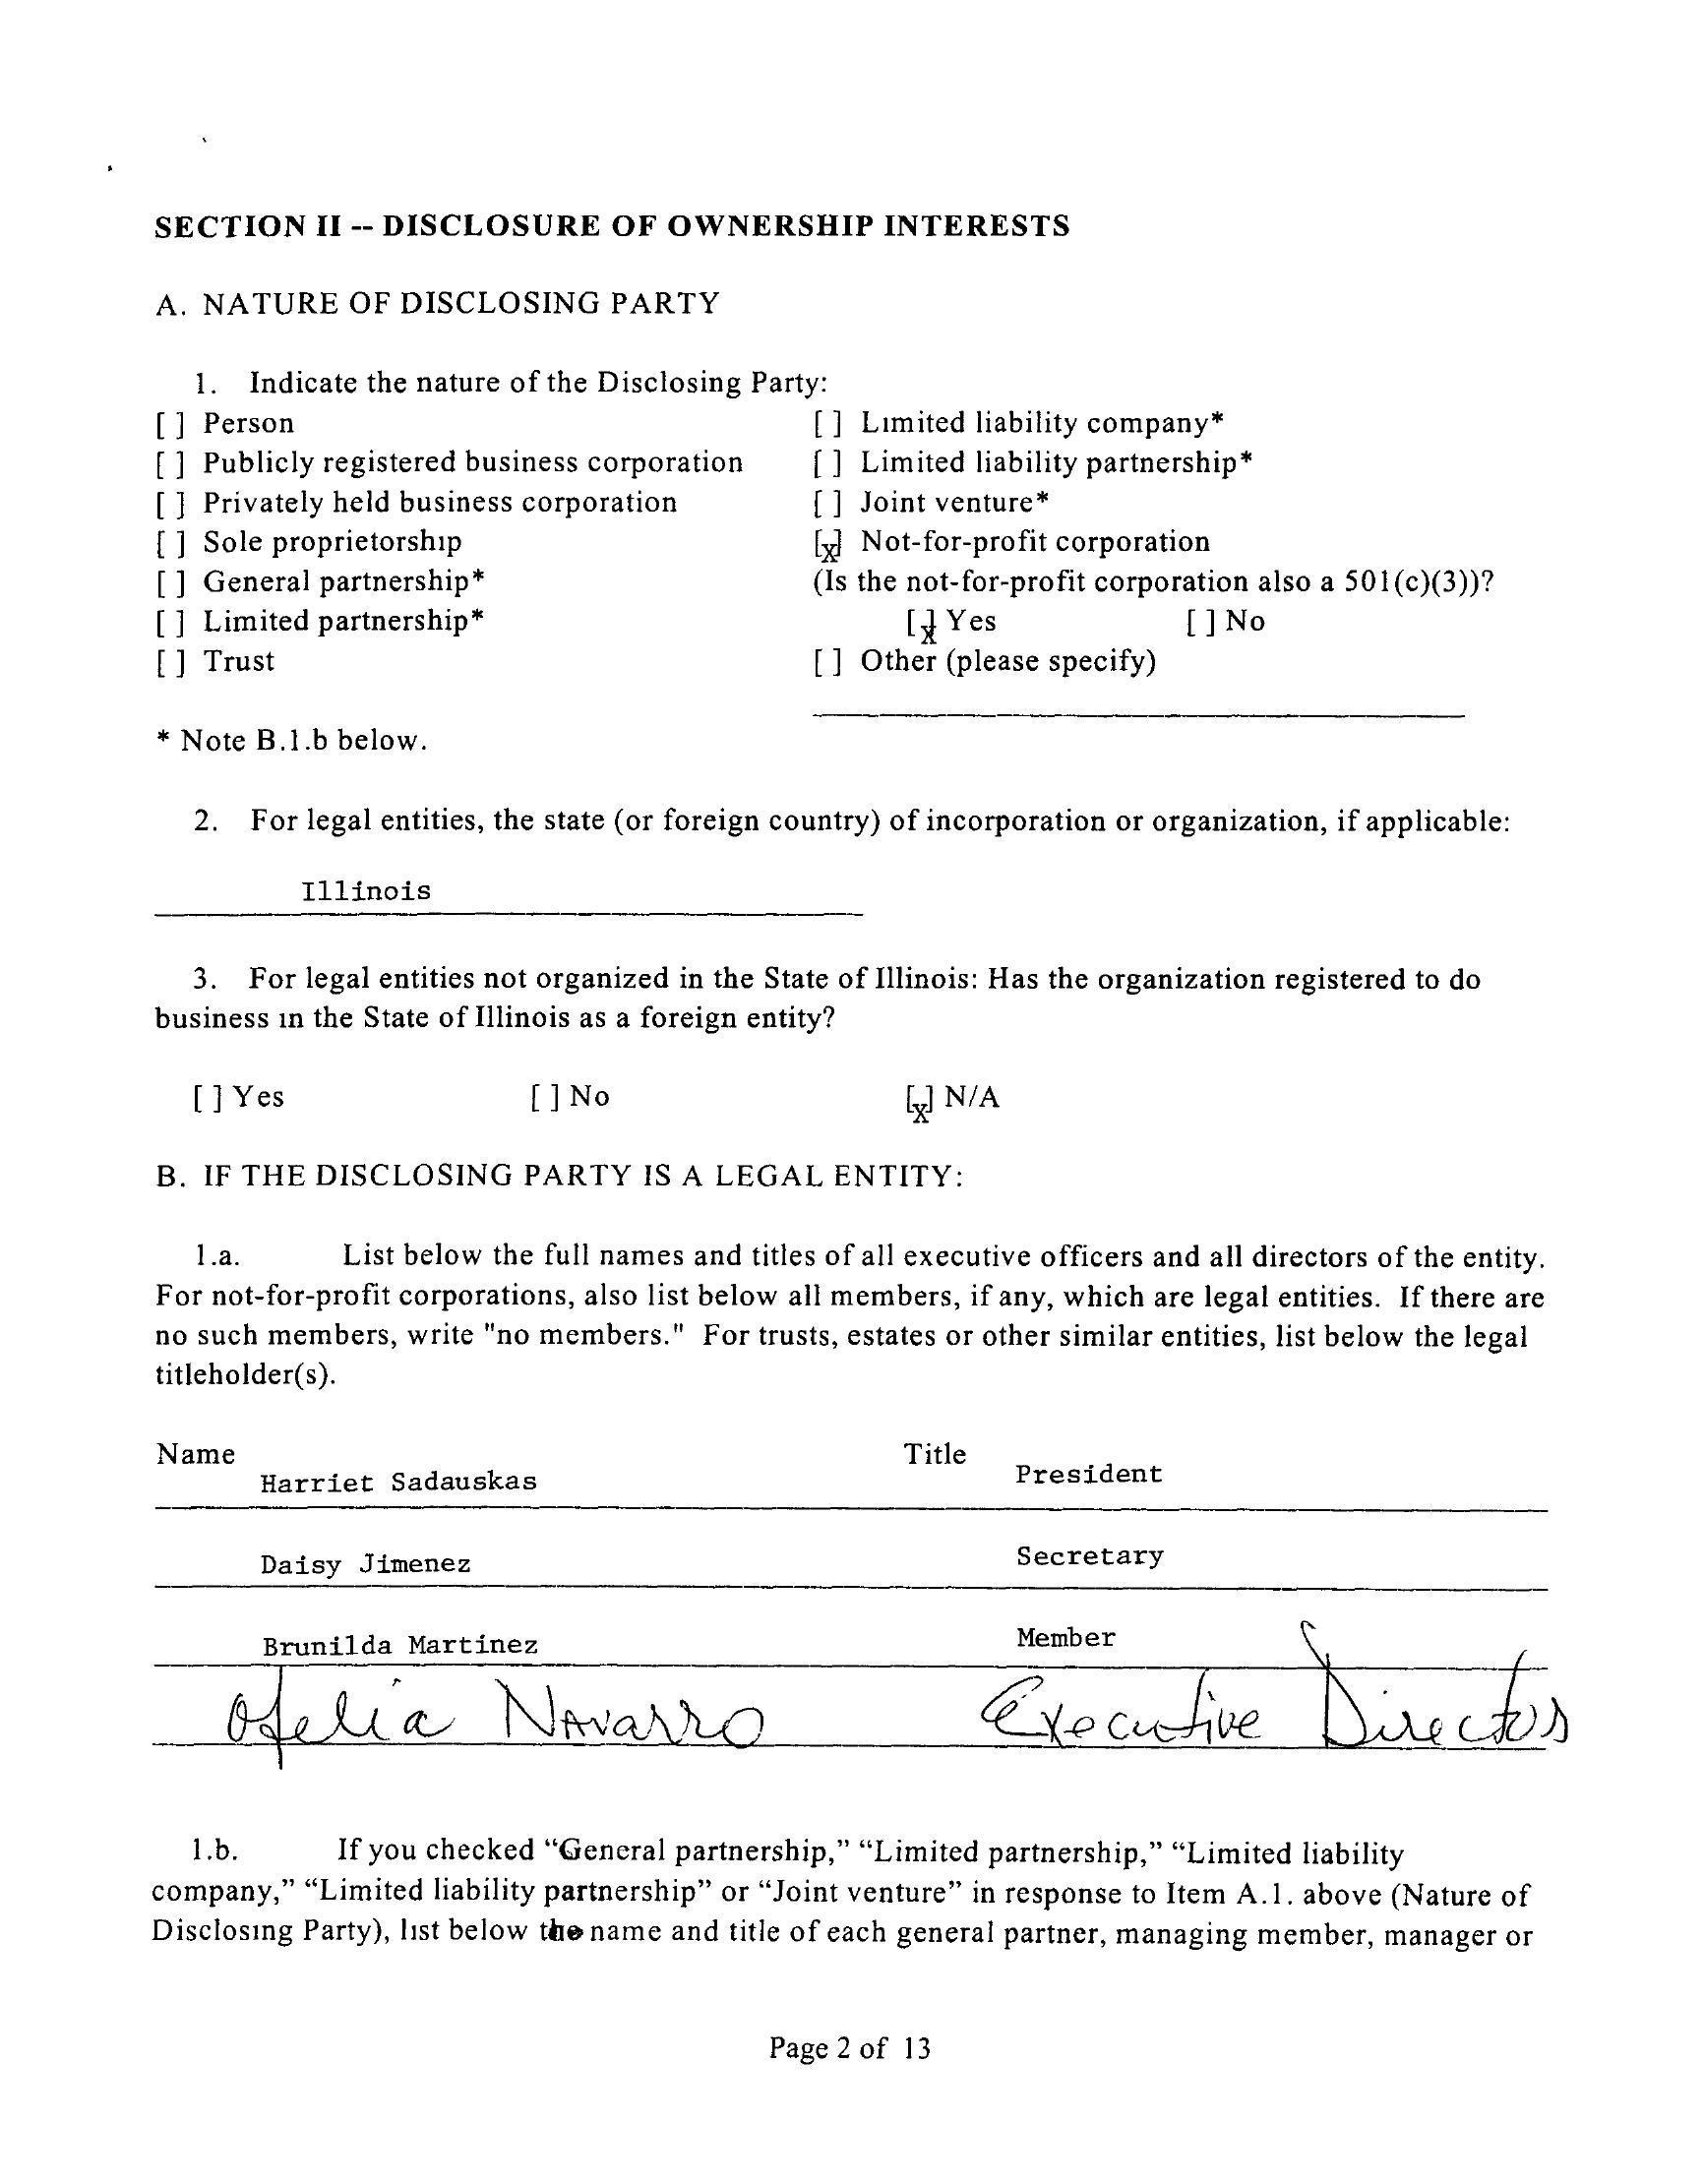 SECTION II -- DISCLOSURE OF OWNERSHIP INTERESTS
A. NATURE OF DISCLOSING PARTY
1. Indicate the nature of the Disclosing Party:
[ ] Person [ ] Limited liability company*
[ ] Publicly registered business corporation [ ] Limited liability partnership*
[ ] Privately held business corporation [ ] Joint venture*
[ ] Sole proprietorship [x] Not-for-profit corporation
[ ] General partnership* (Is the not-for-profit corporation also a 501(c)(3))?
[ ] Limited partnership* [x] Yes [ ] No
[ ] Trust [ ] Other (please specify)
* Note B.1.b below.
2. For legal entities, the state (or foreign country) of incorporation or organization, if applicable:
Illinois
3. For legal entities not organized in the State of Illinois: Has the organization registered to do
business in the State of Illinois as a foreign entity?
[ ] Yes [ ] No [x] N/A
B. IF THE DISCLOSING PARTY IS A LEGAL ENTITY:
1.a. List below the full names and titles of all executive officers and all directors of the entity.
For not-for-profit corporations, also list below all members, if any, which are legal entities. If there are
no such members, write "no members." For trusts, estates or other similar entities, list below the legal
titleholder(s).
Name Title
Harriet Sadauskas President
Daisy Jimenez Secretary
Brunilda Martinez Member
Ofelia Navarro Executive Director
1.b. If you checked “General partnership,” “Limited partnership,” “Limited liability
company,” “Limited liability partnership” or “Joint venture” in response to Item A.1. above (Nature of
Disclosing Party), list below the name and title of each general partner, managing member, manager or
Page 2 of 13